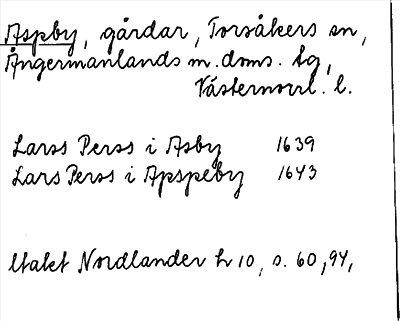 Aspby, gårdar, Torsåkers sn,
Ångermanlands m. doms. tg,
Västernorrl. l.
Larss Perss i Asby 1639
Lars Perss i Apspeby 1643
Utakt Nordlander h 10, s. 60, 94,